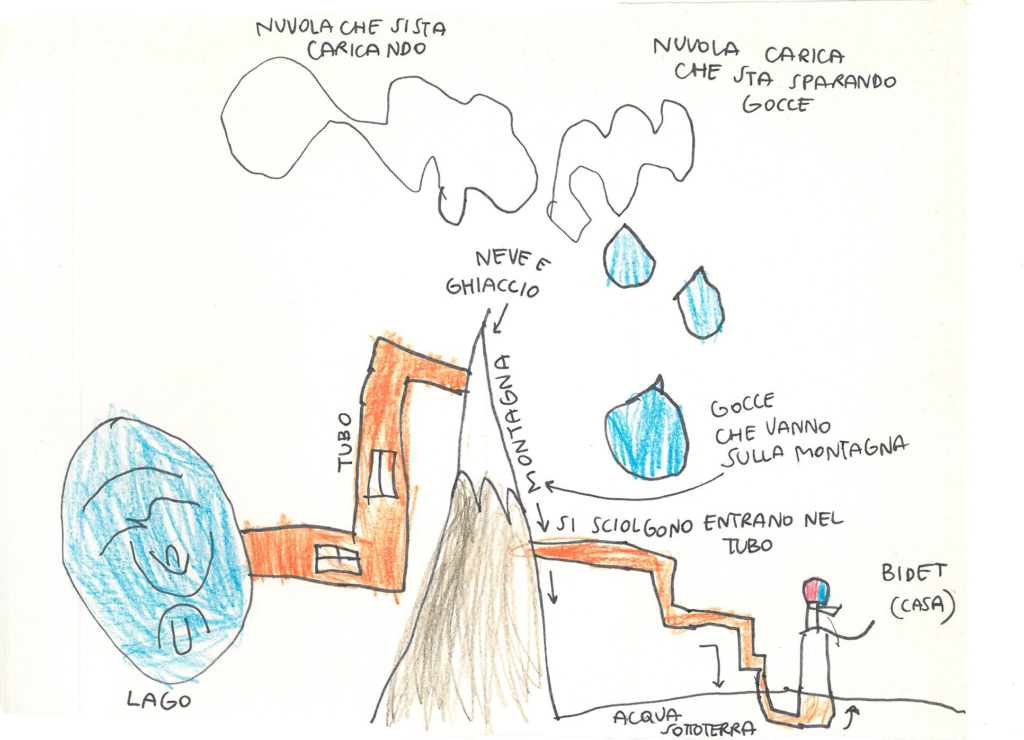 NUVOLA CHE SI STA
CARICANDO
NUVOLA CARICA
CHE STA SPARANDO
GOCCE
NEVE E
GHIACCIO
MONTAGNA
TUBO
GOCCE
CHE VANNO
SULLA MONTAGNA
SI SCIOLGONO ENTRANO NEL
TUBO
BIDET
(CASA)
LAGO
ACQUA
SOTTOTERRA